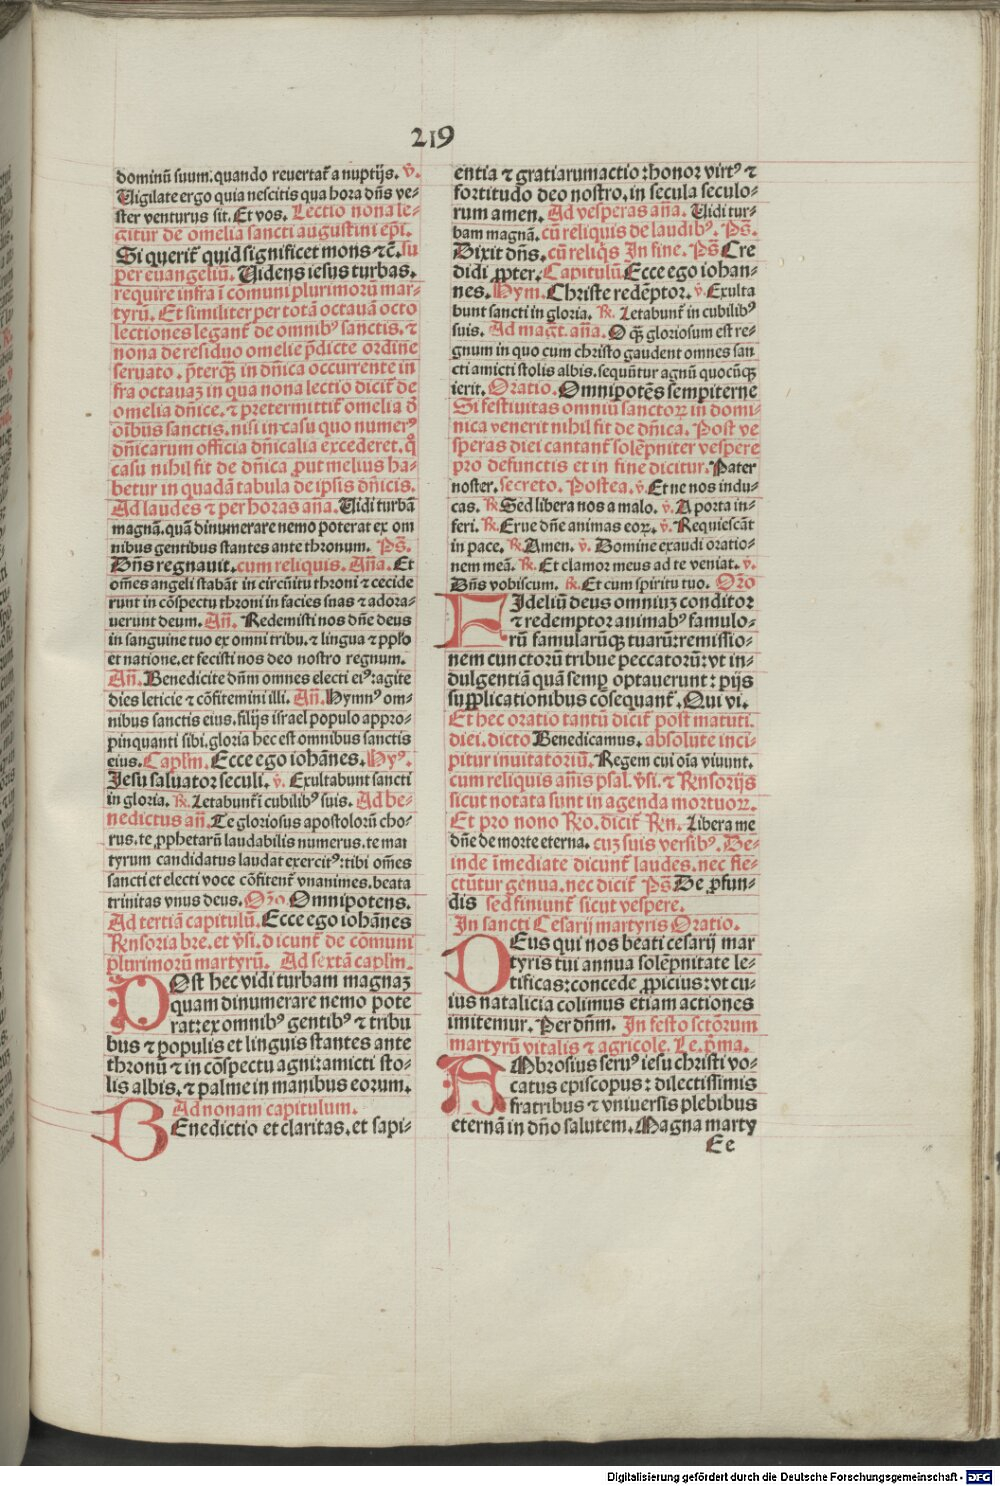 219
dominū suum: quando reuertat᷑ a nuptijs. ℣.
Uigilate ergo quia nescitis qua hora dn̄s ve-
ster venturus sit. Et vos. Lectio nona le-
gitur de omelia sancti augustini ep̄i.
Si querit᷑ quid significet mons ⁊c̄. su
per euangeliū. Uidens iesus turbas.
require infra ī comuni plurimorū mar-
tyrū. Et similiter per totā octauā octo
lectiones legant᷑ de omnibꝰ sanctis. ⁊
nona de residuo omelie p̄dicte ordine
seruato. p̄terꝗ̃ in dn̄ica occurrente in
fra octauaꝫ in qua nona lectio dicit᷑ de
omelia dn̄ice. ⁊ pretermittit᷑ omelia d̄
oībus sanctis. nisi in casu quo numerꝰ
dn̄icarum officia dn̄icalia excederet. q̊
casu nihil fit de dn̄ica ꝓut melius ha-
betur in quadā tabula de ipsis dn̄icis.
Ad laudes ⁊ per horas an̄a. Uidi turbā
magnā. quā dinumerare nemo poterat ex om
nibus gentibus stantes ante thronum. Ps̄.
Dn̄s regnauit. cum reliquis. An̄a. Et
om̄es angeli stabāt in circūitu throni ⁊ cecide
runt in cōspectu throni in facies suas ⁊ adora-
uerunt deum. An̄. Redemisti nos dn̄e deus
in sanguine tuo ex omni tribu. ⁊ lingua ⁊ pplo
et natione. et fecisti nos deo nostro regnum.
An̄. Benedicite dn̄m omnes electi eiꝰ: agite
dies leticie ⁊ cōfitemini illi. An̄. Hymnꝰ om-
nibus sanctis eius. filijs israel populo appro-
pinquanti sibi. gloria hec est omnibus sanctis
eius. Caplm̄. Ecce ego iohānes. Hyꝰ.
Jesu saluator seculi. ℣. Exultabunt sancti
in gloria. ℟. Letabunt᷑ ī cubilibꝰ suis. Ad be-
nedictus an̄. Te gloriosus apostolorū cho-
rus. te ꝓphetarū laudabilis numerus. te mar
tyrum candidatus laudat exercitꝰ: tibi om̄es
sancti et electi voce cōfitent᷑ vnanimes. beata
trinitas vnus deus. Oīo. Omnipotens.
Ad tertiā capitulū. Ecce ego iohānes
Rn̄soria bre. et v̄si. dicunt᷑ de comuni
plurimorū martyrū. Ad sextā caplm̄.
POst hec vidi turbam magnaꝫ
quam dinumerare nemo pote
rat: ex omnibꝰ gentibꝰ ⁊ tribu
bus ⁊ populis et linguis stantes ante
thronū ⁊ in cōspectu agni: amicti sto-
lis albis. ⁊ palme in manibus eorum.
Ad nonam capitulum.
BEnedictio et claritas. et sapi-
entia ⁊ gratiarumactio: honor virtꝰ ⁊
fortitudo deo nostro. in secula seculo-
rum amen. Ad vesperas an̄a. Uidi tur-
bam magnā. cū reliquis de laudibꝰ. Ps̄.
Dixit dn̄s. cū reliqs In fine. Ps̄ Cre
didi ꝓpter. Capitulū. Ecce ego iohan-
nes. Hym. Christe redēptor. ℣. Exulta
bunt sancti in gloria. ℟. Letabunt᷑ in cubilibꝰ
suis. Ad magt. an̄a. O ꝗ̃ gloriosum est re-
gnum in quo cum christo gaudent omnes san
cti amicti stolis albis. sequūtur agnū quocūqꝫ
ierit. Oratio. Omnipotēs sempiterne
Si festiuitas omniū sanctoꝝ in domi-
nica venerit nihil fit de dn̄ica. Post ve
speras diei cantant᷑ solēpniter vespere
pro defunctis et in fine dicitur. Pater
noster. secreto. Postea. ℣. Et ne nos indu-
cas. ℟. Sed libera nos a malo. ℣. A porta in-
feri. ℟. Erue dn̄e animas eoꝝ. ℣. Requiescāt
in pace. ℟. Amen. ℣. Domine exaudi oratio-
nem meā. ℟. Et clamor meus ad te veniat. ℣.
Dn̄s vobiscum. ℟. Et cum spiritu tuo. Oīo
FIdeliū deus omniuꝫ conditor
⁊ redemptor animabꝰ famulo-
rū famularūqꝫ tuarū: remissio-
nem cunctorū tribue peccatorū: vt in-
dulgentiā quā semꝑ optauerunt: pijs
supplicationibus cōsequant᷑. Qui vi.
Et hec oratio tantū dicit᷑ post matuti.
diei. dicto Benedicamus. absolute inci-
pitur inuitatoriū. Regem cui oīa viuunt.
cum reliquis an̄is psal. v̄si. ⁊ Rn̄sorijs
sicut notata sunt in agenda mortuoꝝ.
Et pro nono Ro. dicit᷑ Rn̄. Libera me
dn̄e de morte eterna. cuꝫ suis versibꝰ. De-
inde īmediate dicunt᷑ laudes. nec fle-
ctūtur genua. nec dicit᷑ Ps̄ De ꝓfun-
dis sed finiunt᷑ sicut vespere.
In sancti Cesarij martyris Oratio.
DEus qui nos beati cesarij mar
tyris tui annua solēpnitate le-
tificas: concede ꝓpicius: vt cu-
ius natalicia colimus etiam actiones
imitemur. Per dn̄m. In festo sctōrum
martyrū vitalis ⁊ agricole. Le. p̄ma.
AMbrosius seruꝰ iesu christi vo-
catus episcopus: dilectissimis
fratribus ⁊ vniuersis plebibus
eternā in dn̄o salutem. Magna marty
Ee
Digitalisierung gefördert durch die Deutsche Forschungsgemeinschaft - DFG